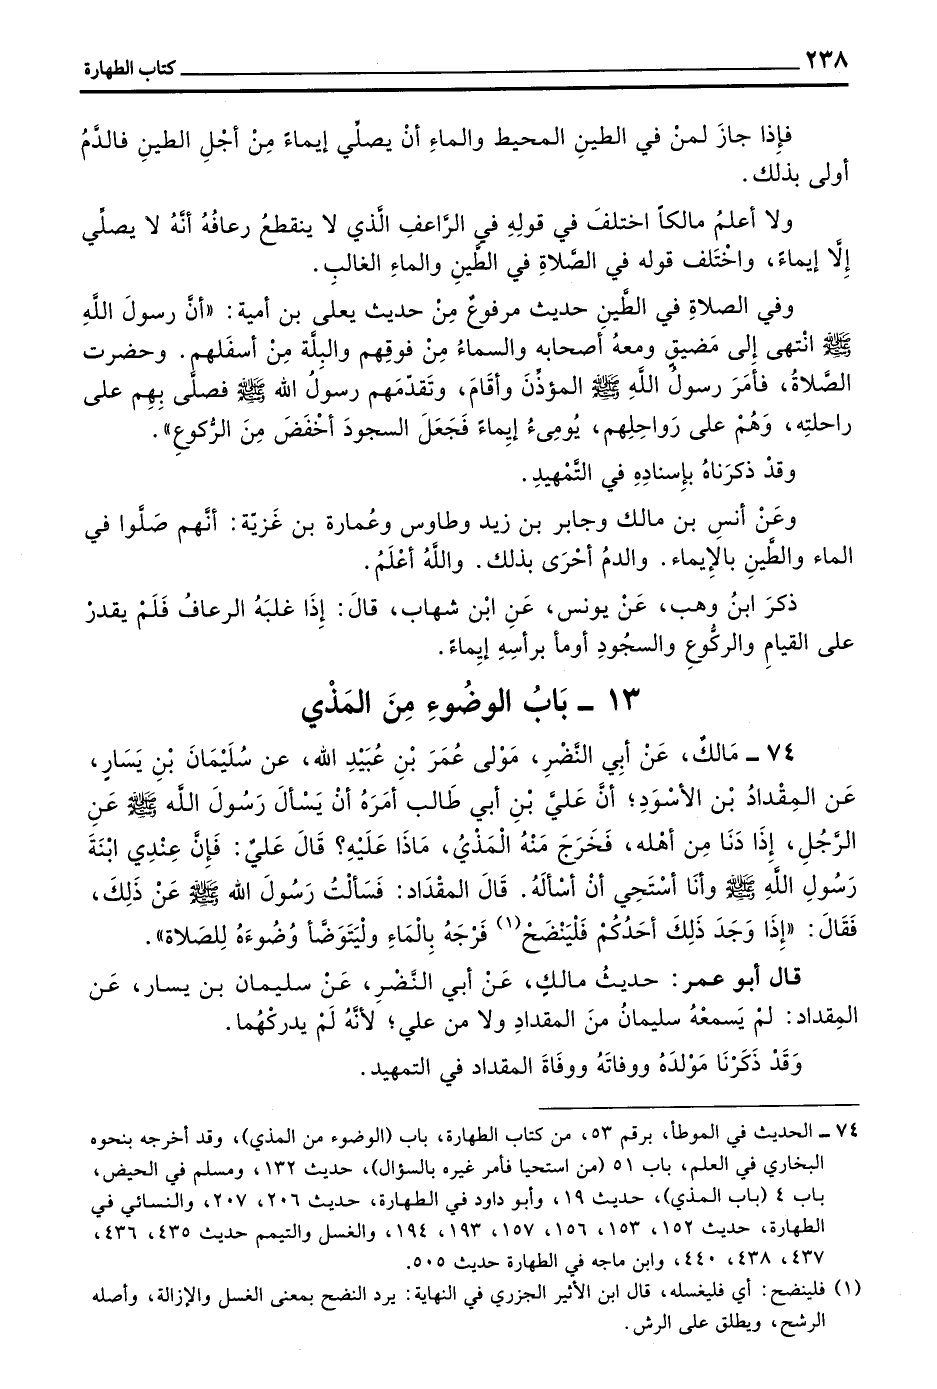 ٢٣٨ كتاب الطهارة
فإِذا جازَ لمنْ في الطينِ المحيط والماءِ أنْ يصلِّي إيماءً مِنْ أجْلِ الطينِ فالدَّمُ
أولى بذلك.
ولا أعلمُ مالكاً اختلفَ في قولِهِ في الرَّاعفِ الَّذي لا ينقطعُ رعافُهُ أنَّهُ لا يصلِّي
إِلَّا إيماءً، واخْتَلف قوله في الصَّلاةِ في الطِّينِ والماءِ الغالبِ.
وفي الصلاةِ في الطِّينِ حديث مرفوعٌ مِنْ حديث يعلى بن أمية: «أنَّ رسولَ اللَّهِ
ﷺ انْتهى إلى مَضيقٍ ومعهُ أصحابه والسماءُ مِنْ فوقِهم والبِلَّة مِنْ أسفَلهم. وحضرت
الصَّلاةُ، فأمَرَ رسولُ اللَّهِ ﷺ المؤذِّنَ وأقَامَ، وتَقدّمَهم رسولُ الله ﷺ فصلَّى بِهِم على
راحلتِه، وَهُمْ على رَواحِلِهم، يُومِىءُ إيماءً فَجَعَلَ السجودَ أخْفَضَ مِنَ الرُّكوعِ».
وقدْ ذكرَناهُ بإسنادِهِ في التَّمْهيدِ.
وعَنْ أنسِ بن مالك وجابر بن زيد وطاوس وعُمارة بن غَزيّة: أنَّهم صَلَّوا في
الماء والطَّينِ بالإيماء. والدمُ أحْرَى بذلك. واللَّهُ أعْلَمُ.
ذكرَ ابنُ وهب، عَنْ يونس، عَنِ ابْن شهاب، قالَ: إذَا غلبَهُ الرعافُ فَلَمْ يقدرْ
على القيامِ والركُّوعِ والسجُودِ أومأ برأسِهِ إيماءً.
١٣ - بَابُ الوضُوءِ مِنَ المَذْي
٧٤ - مَالكٌ، عَنْ أبي النَّضْرِ، مَوْلى عُمَرَ بْنِ عُبَيْدِ الله، عن سُلَيْمَانَ بْنِ يَسَارٍ،
عَن المِقْدادُ بْن الأسْوَدِ؛ أنَّ عَليَّ بْنِ أبي طَالب أمَرَهُ أنْ يَسْألَ رَسُولَ اللَّه ﷺ عَنِ
الرَّجُلِ، إذَا دَنَا مِن أهْله، فَخَرَجَ مَنْهُ المَذْيُ، مَاذَا عَلَيْهِ؟ قَالَ عَليٌ: فَإنَّ عِنْدِي ابْنَةَ
رَسُولِ اللَّهِ ﷺ وأنَا أسْتَحِي أنْ أسْألَهُ. قَالَ المقْدَاد: فَسَألْتُ رَسُولَ الله ﷺ عَنْ ذَلِكَ،
فَقَالَ: «إذَا وَجَدَ ذَلِكَ أحَدُكُمْ فَلْيَنْضَحْ(١) فَرْجَهُ بِالْماءِ ولْيَتَوَضَّأ وُضُوءَهُ لِلصَلاة».
قال أبو عمر: حديثُ مالكٍ، عَنْ أبي النَّضْرِ، عَنْ سليمان بن يسار، عَن
المِقداد: لمْ يَسمعْهُ سليمانُ منَ المقدادِ ولا من علي؛ لأنَّهُ لَمْ يدركْهُما.
وَقَدْ ذَكَرْنَا مَوْلدَهُ ووفاتَهُ ووفَاةَ المقداد في التمهيد.
٧٤ - الحديث في الموطأ، برقم ٥٣، من كتاب الطهارة، باب (الوضوء من المذي)، وقد أخرجه بنحوه
البخاري في العلم، باب ٥١ (من استحيا فأمر غيره بالسؤال)، حديث ١٣٢، ومسلم في الحيض،
باب ٤ (باب المذي)، حديث ١٩، وأبو داود في الطهارة، حديث ٢٠٦، ٢٠٧، والنسائي في
الطهارة، حديث ١٥٢، ١٥٣، ١٥٦، ١٥٧، ١٩٣، ١٩٤، والغسل والتيمم حديث ٤٣٥، ٤٣٦،
٤٣٧، ٤٣٨، ٤٤٠، وابن ماجه في الطهارة حديث ٥٠٥.
(١) فلينضح: أي فليغسله، قال ابن الأثير الجزري في النهاية: يرد النضح بمعنى الغسل والإزالة، وأصله
الرشح، ويطلق على الرش.